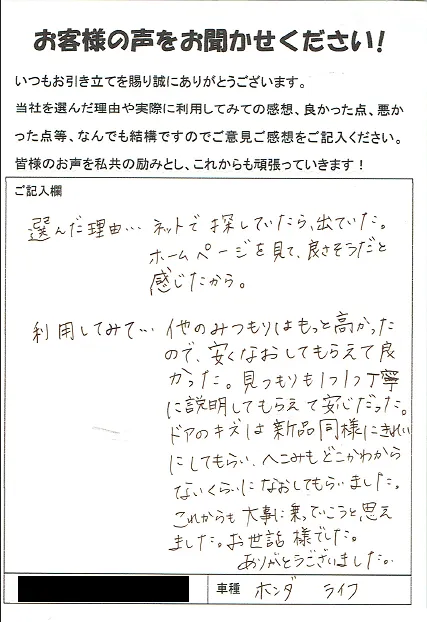 お客様の声をお聞かせください!
いつもお引き立てを賜り誠にありがとうございます。
当社を選んだ理由や実際に利用してみての感想、良かった点、悪か
った点等、なんでも結構ですのでご意見ご感想をご記入ください。
皆様のお声を私共の励みとし、これからも頑張っていきます!
ご記入欄
選んだ理由… ネットで探していたら、出ていた。
ホームページを見て、良さそうだと
感じたから。
利用してみて… 他のみつもりはもっと高かった
ので、安くなおしてもらえて良
かった。見つもりも1つ1つ丁寧
に説明してもらえて安心だった。
ドアのキズは新品同様にきれい
にしてもらい、へこみもどこかわから
ないくらいになおしてもらいました。
これからも大事に乗っていこうと思え
ました。お世話様でした。
ありがとうございました。
車種 ホンダ ライフ